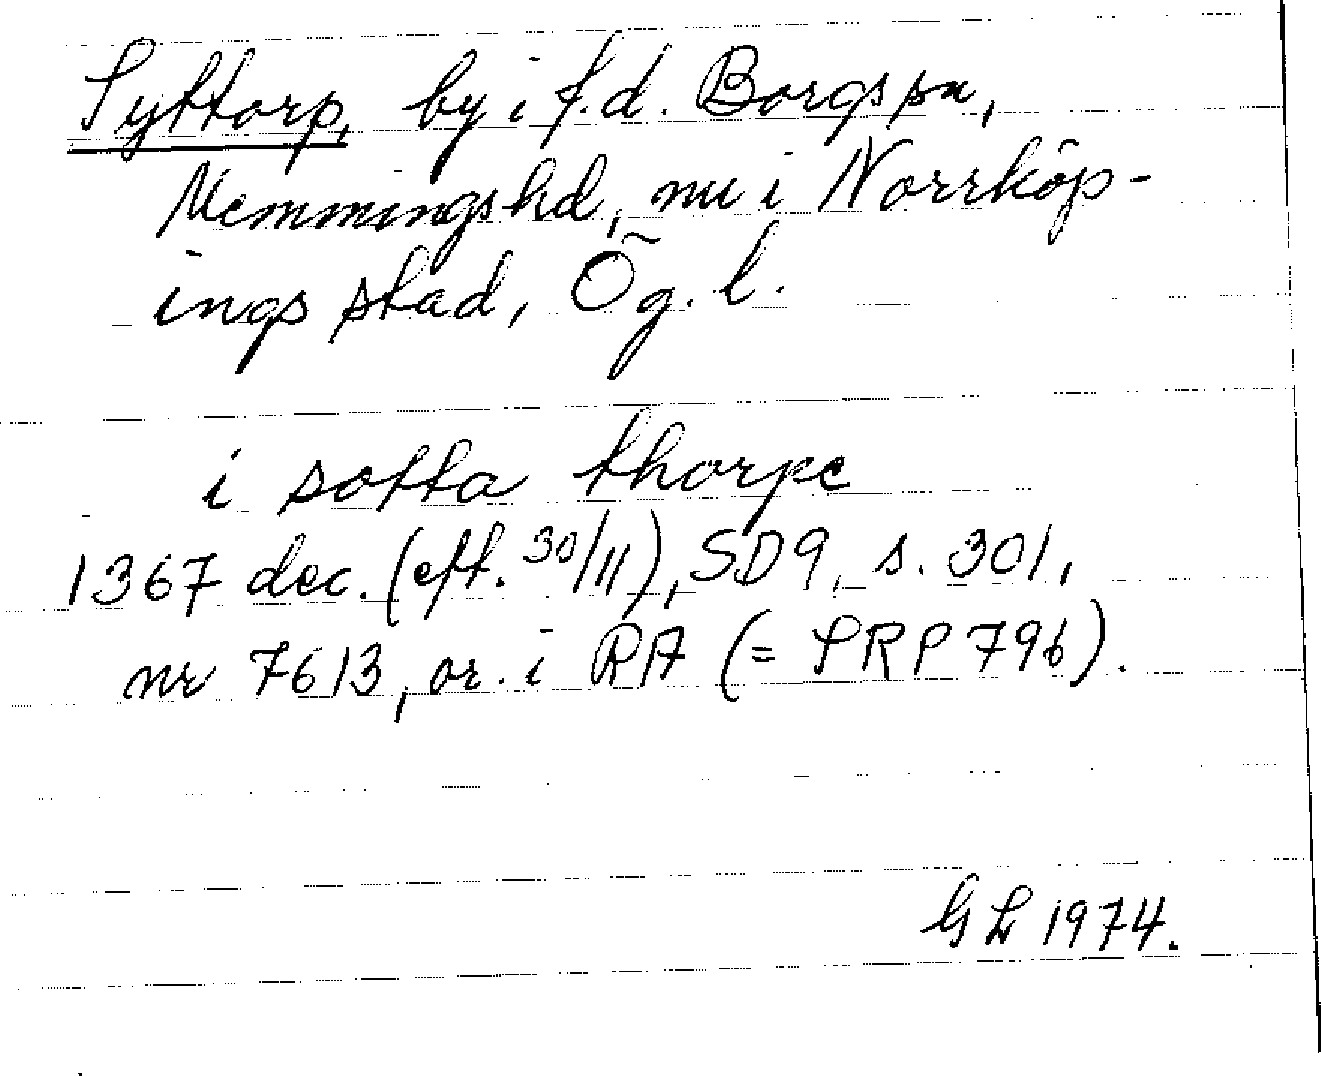 Syttorp, by i f.d. Borgs sn,
Memmings hd, nu i Norrköp-
ings stad, Ög. l.
i sotta thorpe
1367 dec. (eft. 30/11), SD9, s. 301,
nr 7613, or. i RA (= SRP 796).
GL 1974.